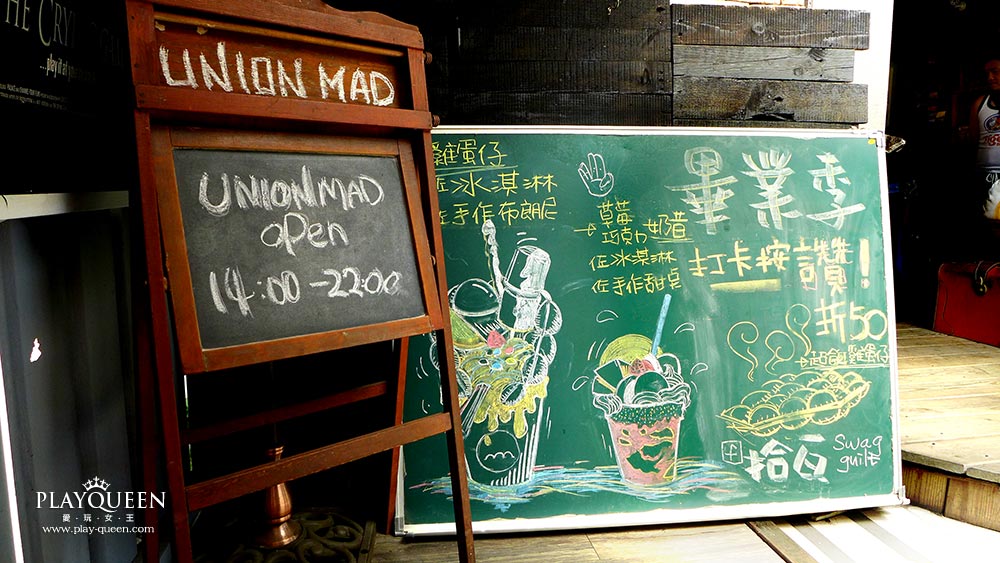 UNION MAD
UNIONMAD
open
14:00-22:00
雞蛋仔
佐冰淇淋
佐手作布朗尼
草莓
巧克力 奶昔
佐冰淇淋
佐手作甜桌
畢業季
打卡按讚!
折50
雞蛋仔
拾百
swag
guilt
PLAYQUEEN
愛·玩·女·王
www.play-queen.com